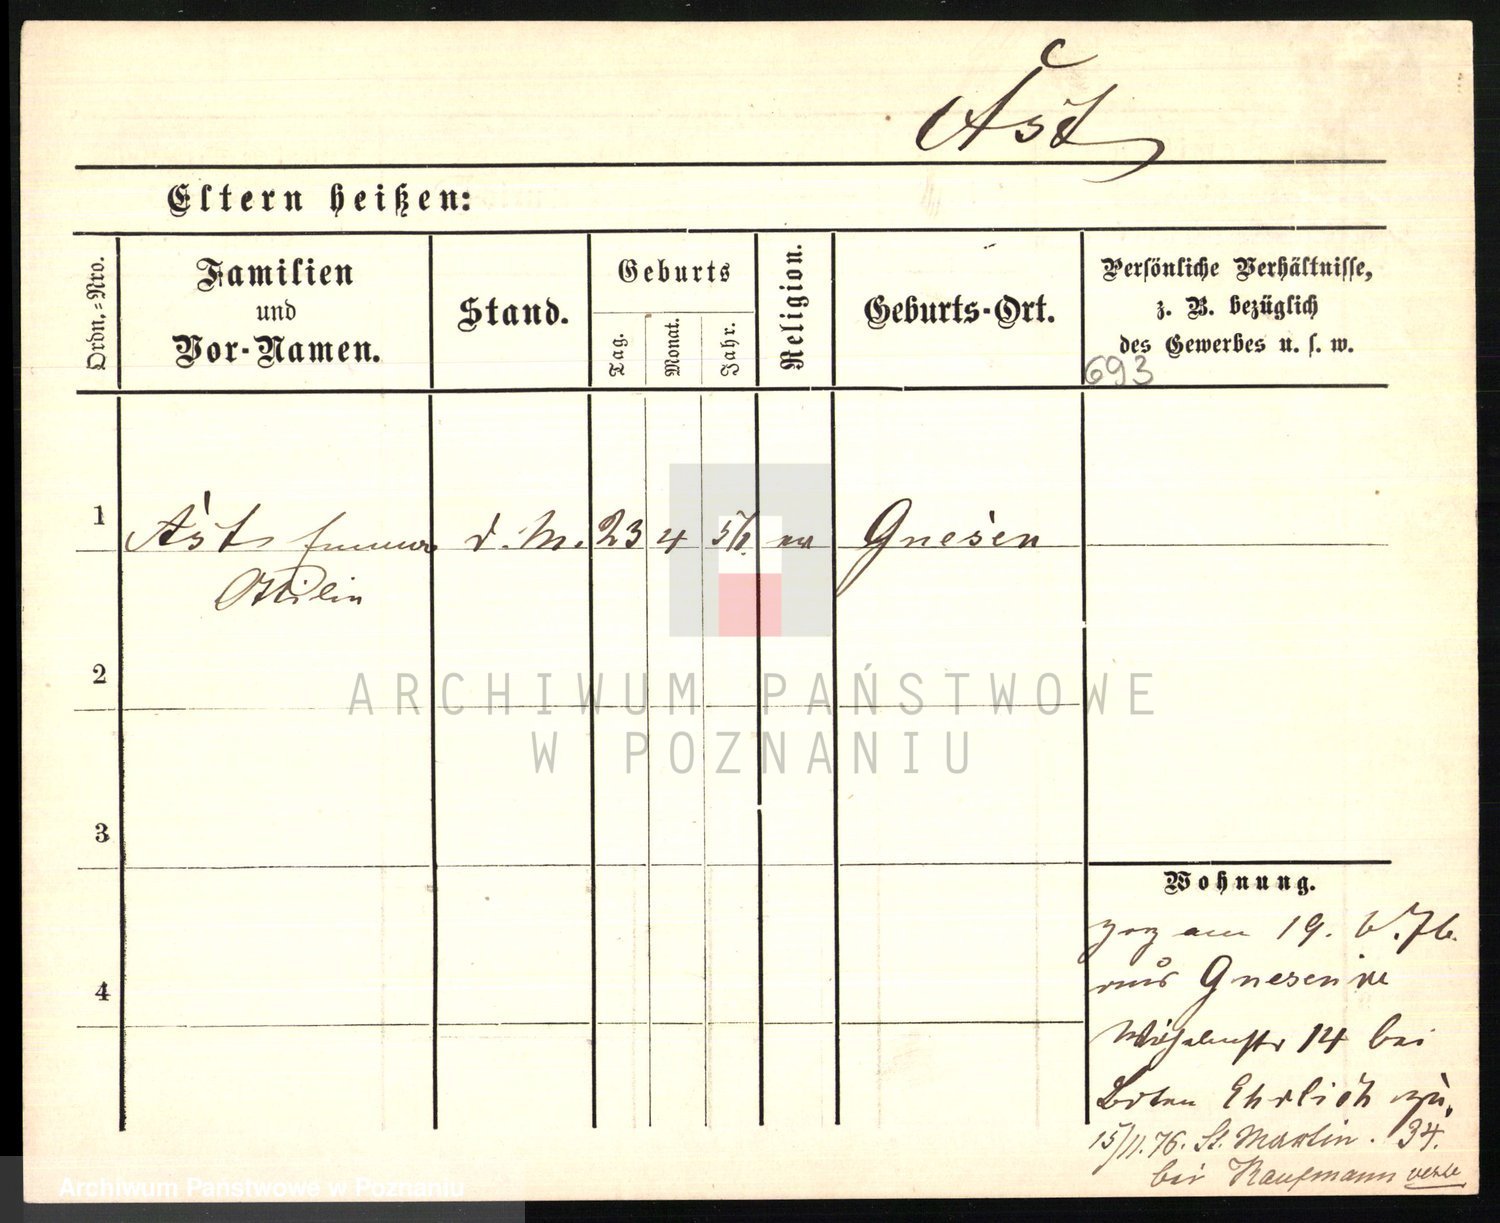 Ast
Eltern heißen:
Ordn.-Nro.
Familien
und
Vor-Namen.
Stand.
Geburts
Tag.
Monat.
Jahr.
Religion.
Geburts-Ort.
Persönliche Verhältnisse,
z. B. bezüglich
des Gewerbes u. s. w.
693
1
Ast Emma d. M. 23 4 Gnesen
Ottilie
2
ARCHIWUM PAŃSTWOWE
W POZNANIU
3
Wohnung.
zog am 19. 6. 76.
aus Gnesen
4
14 bei
Boten Ehrlich zu.
15/11.76. St. Martin. 34.
bei Kaufmann
Archiwum Państwowe w Poznaniu